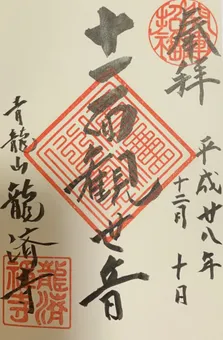 奉拝
平成廿八年
十二月十日
十一面観世音
青龍山龍済寺
龍済禅寺